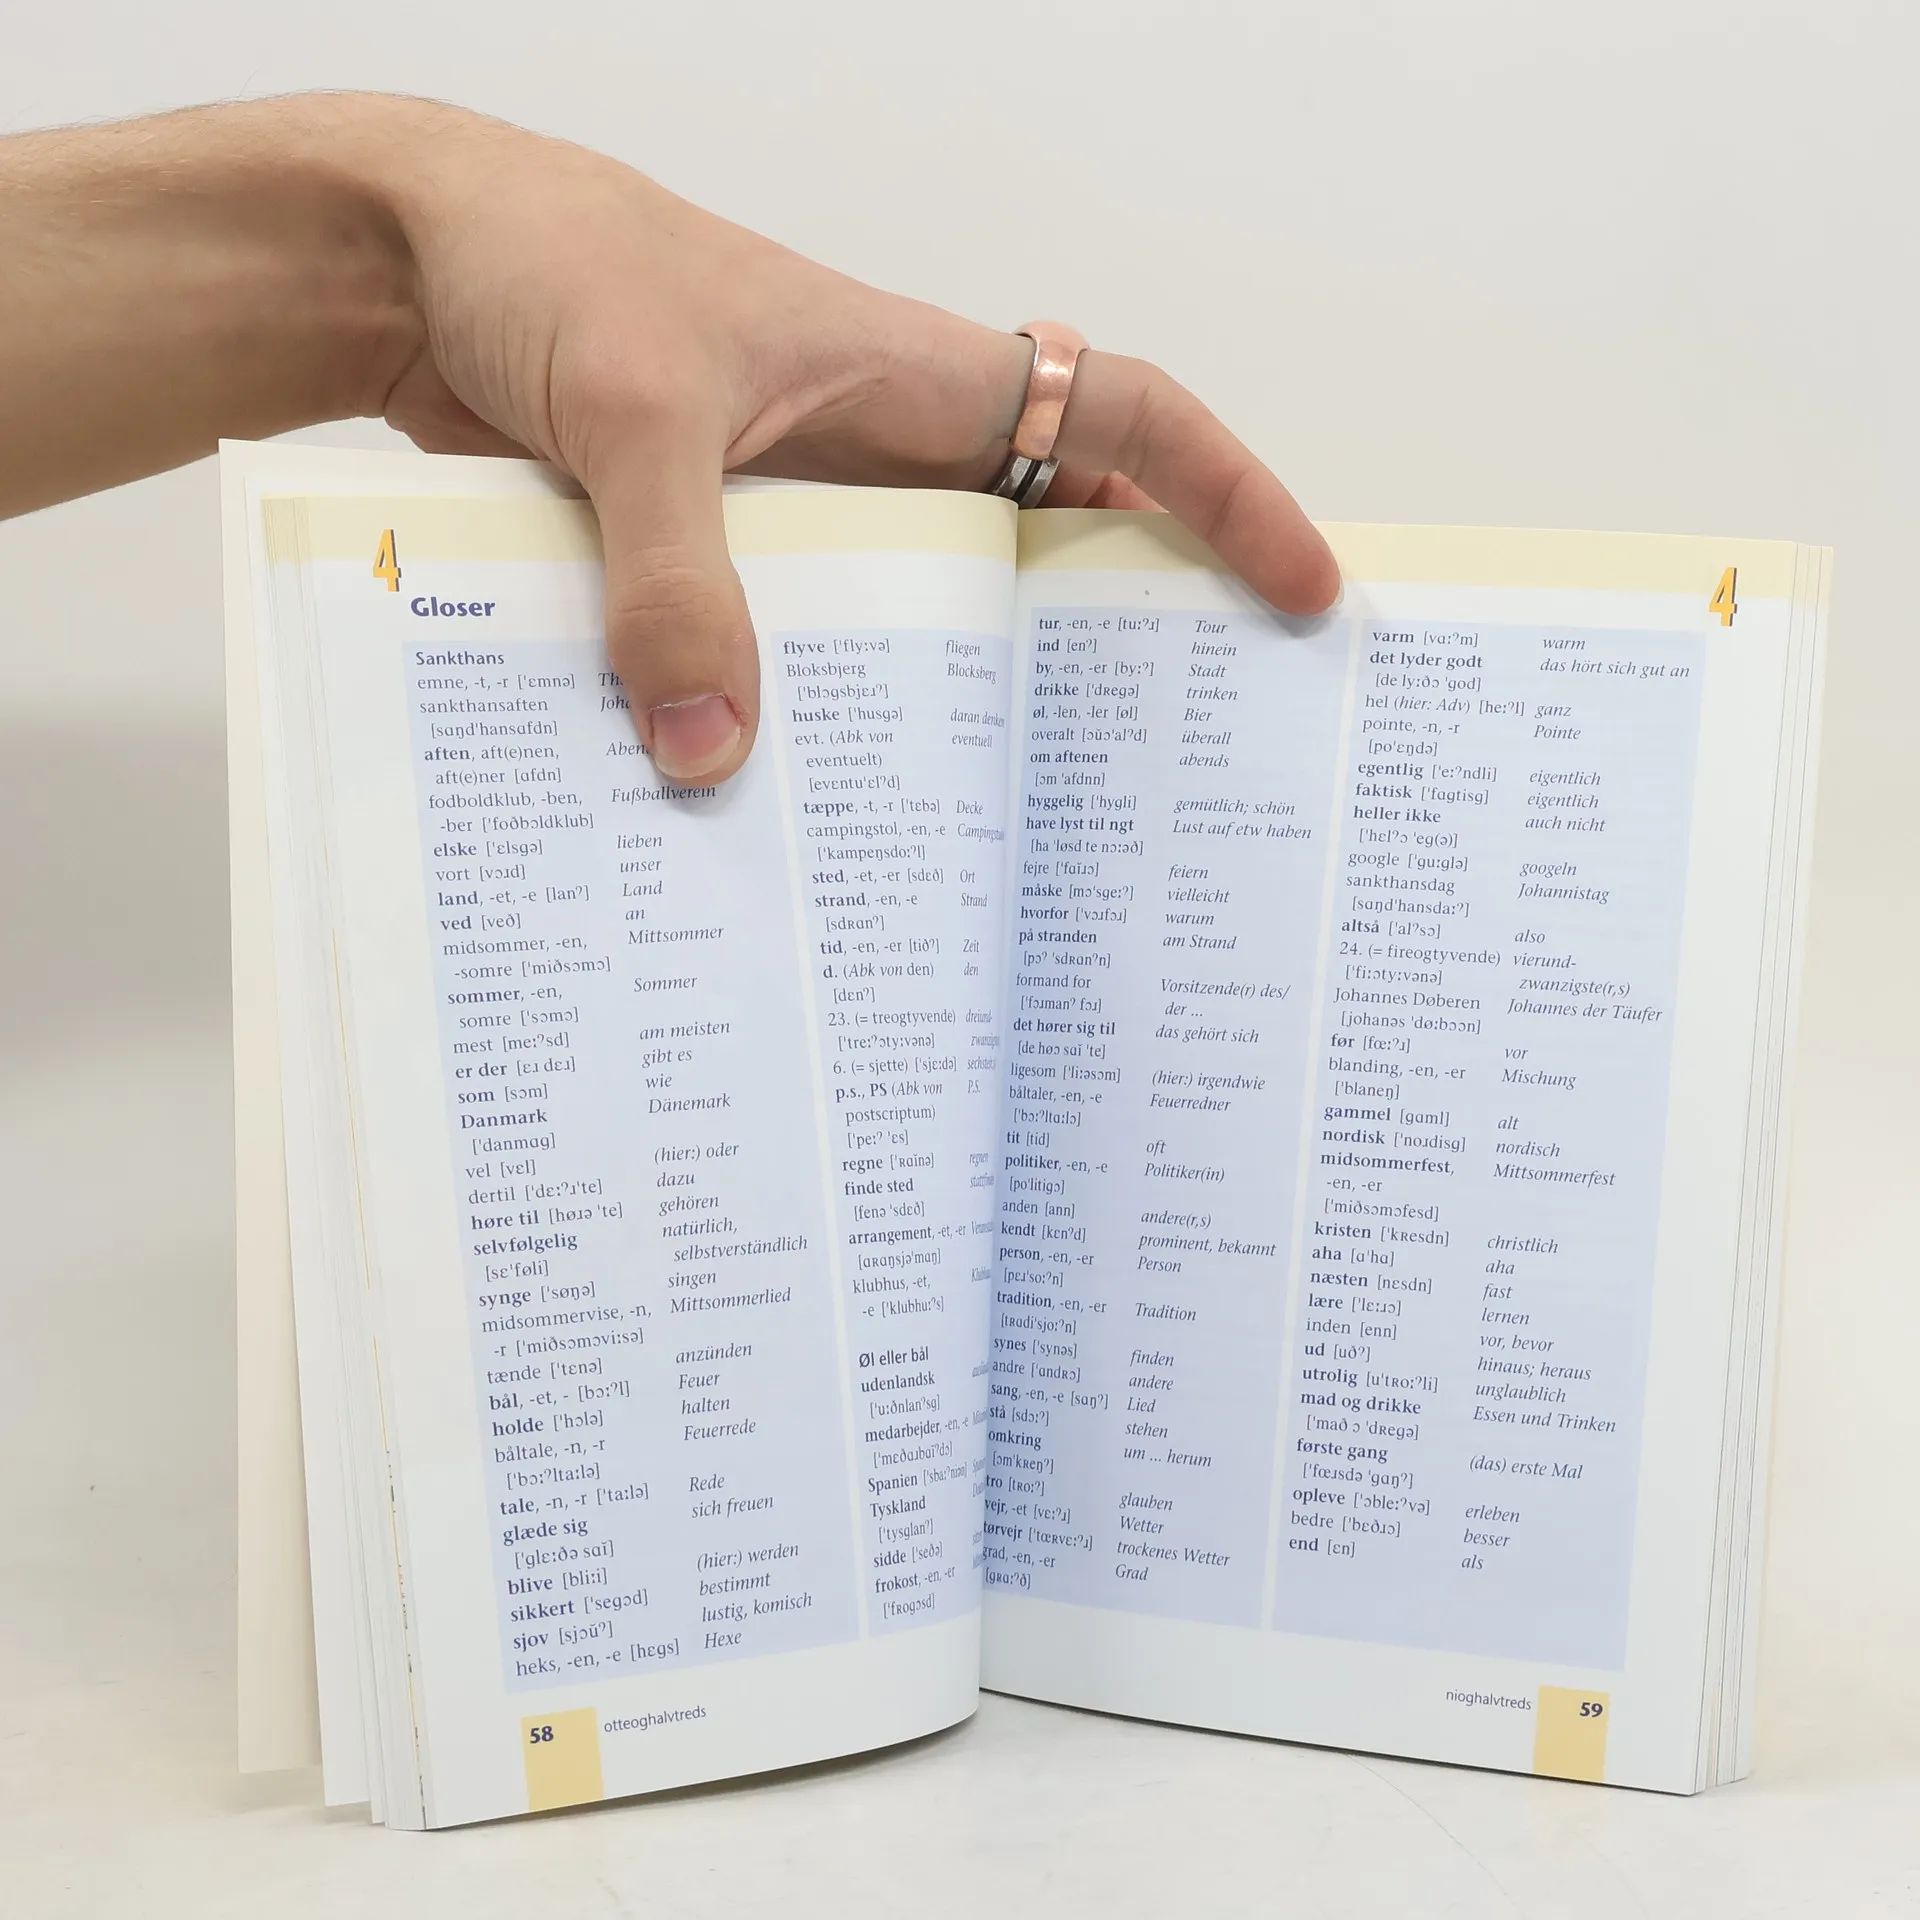 4
Gloser
Sankthans
emne, -t, -r ['emnə]
sankthansaften
[sɑŋd'hansɑfdn]
aften, aft(e)nen,
aft(e)ner [ɑfdn]
fodboldklub, -ben, Fußballverein
-ber ['foðbɔldklub]
elske ['ɛlsgə] lieben
vort [vɔɹd] unser
land, -et, -e [lanˀ] Land
ved [veð] an
midsommer, -en, Mittsommer
-somre ['miðsɔmɔ]
sommer, -en, Sommer
somre ['sɔmɔ]
mest [me:ˀsd] am meisten
er der [ɛɹ dɛɹ] gibt es
som [sɔm] wie
Danmark Dänemark
['danmɑg]
vel [vɛl] (hier:) oder
dertil ['dɛ:ˀɹ'te] dazu
høre til [høɹə 'te] gehören
selvfølgelig natürlich,
[sɛ'føli] selbstverständlich
synge ['søŋə] singen
midsommervise, -n, Mittsommerlied
-r ['miðsɔmɔvi:sə]
tænde ['tɛnə] anzünden
bål, -et, - [bɔ:ˀl] Feuer
holde ['hɔlə] halten
båltale, -n, -r Feuerrede
['bɔ:ˀlta:lə]
tale, -n, -r ['ta:lə] Rede
glæde sig sich freuen
['glɛ:ðə sɑĭ]
blive [bli:i] (hier:) werden
sikkert ['segɔd] bestimmt
sjov [sjɔŭˀ] lustig, komisch
heks, -en, -e [hɛgs] Hexe
flyve ['fly:və] fliegen
Bloksbjerg Blocksberg
['blɔgsbjɛɹˀ]
huske ['husgə] daran denken
evt. (Abk von eventuell
eventuelt)
[evɛntu'ɛlˀd]
tæppe, -t, -r ['tɛbə] Decke
campingstol, -en, -e
['kampeŋsdo:ˀl]
sted, -et, -er [sdɛð] Ort
strand, -en, -e Strand
[sdʀɑnˀ]
tid, -en, -er [tiðˀ] Zeit
d. (Abk von den) den
[dɛnˀ]
23. (= treogtyvende) dreiund-
['tre:ˀɔty:vənə]
6. (= sjette) ['sjɛ:də]
p.s., PS (Abk von P.S.
postscriptum)
['pe:ˀ 'ɛs]
regne ['ʀɑĭnə] regnen
finde sted
[fenə 'sdɛð]
arrangement, -et, -er
[ɑʀɑŋsjə'mɑŋ]
klubhus, -et,
-e ['klubhu:ˀs]
Øl eller bål
udenlandsk
['u:ðnlanˀsg]
medarbejder, -en, -e
['mɛðɑɹbɑĭˀdɔ]
Spanien ['sba:ˀniən]
Tyskland
['tysglanˀ]
sidde ['seðə]
frokost, -en, -er
['fʀogɔsd]
58 otteoghalvtreds
4
tur, -en, -e [tu:ˀɹ] Tour
ind [enˀ] hinein
by, -en, -er [by:ˀ] Stadt
drikke ['dʀegə] trinken
øl, -len, -ler [øl] Bier
overalt [ɔŭɔ'alˀd] überall
om aftenen abends
[ɔm 'ɑfdnn]
hyggelig ['hygli] gemütlich; schön
have lyst til ngt Lust auf etw haben
[ha 'løsd te nɔ:əð]
fejre ['fɑĭɹɔ] feiern
måske [mɔ'sge:ˀ] vielleicht
hvorfor ['vɔɹfɔɹ] warum
på stranden am Strand
[pɔˀ 'sdʀɑnˀn]
formand for Vorsitzende(r) des/
['fɔɹmanˀ fɔɹ] der ...
det hører sig til das gehört sich
[de høɔ sɑĭ 'te]
ligesom ['li:əsɔm] (hier:) irgendwie
båltaler, -en, -e Feuerredner
['bɔ:ˀlta:lɔ]
tit [tid] oft
politiker, -en, -e Politiker(in)
[po'litigɔ]
anden [ann] andere(r,s)
kendt [kɛnˀd] prominent, bekannt
person, -en, -er Person
[pɛɹ'so:ˀn]
tradition, -en, -er Tradition
[tʀɑdi'sjo:ˀn]
synes ['synəs] finden
andre ['ɑndʀɔ] andere
sang, -en, -e [sɑŋˀ] Lied
stå [sdɔ:ˀ] stehen
omkring um ... herum
[ɔm'kʀeŋˀ]
tro [tʀo:ˀ] glauben
vejr, -et [vɛ:ˀɹ] Wetter
tørvejr ['tœʀvɛ:ˀɹ] trockenes Wetter
grad, -en, -er Grad
[gʀɑ:ˀð]
varm [vɑ:ˀm] warm
det lyder godt das hört sich gut an
[de ly:ðɔ 'god]
hel (hier: Adv) [he:ˀl] ganz
pointe, -n, -r Pointe
[po'ɛŋdə]
egentlig ['e:ˀndli] eigentlich
faktisk ['fɑgtisg] eigentlich
heller ikke auch nicht
['hɛlˀɔ 'eg(ə)]
google ['gu:glə] googeln
sankthansdag Johannistag
[sɑŋd'hansda:ˀ]
altså ['alˀsɔ] also
24. (= fireogtyvende) vierund-
['fi:ɔty:vənə] zwanzigste(r,s)
Johannes Døberen Johannes der Täufer
[johanəs 'dø:bɔɔn]
før [fœ:ˀɹ] vor
blanding, -en, -er Mischung
['blaneŋ]
gammel [gɑml] alt
nordisk ['noɹdisg] nordisch
midsommerfest, Mittsommerfest
-en, -er
['miðsɔmɔfesd]
kristen ['kʀesdn] christlich
aha [ɑ'hɑ] aha
næsten [nɛsdn] fast
lære ['lɛ:ɹɔ] lernen
inden [enn] vor, bevor
ud [uðˀ] hinaus; heraus
utrolig [u'tʀo:ˀli] unglaublich
mad og drikke Essen und Trinken
['mað ɔ 'dʀegə]
første gang (das) erste Mal
['fœɹsdə 'gɑŋˀ]
opleve ['ɔble:ˀvə] erleben
bedre ['bɛðɹɔ] besser
end [ɛn] als
nioghalvtreds 59